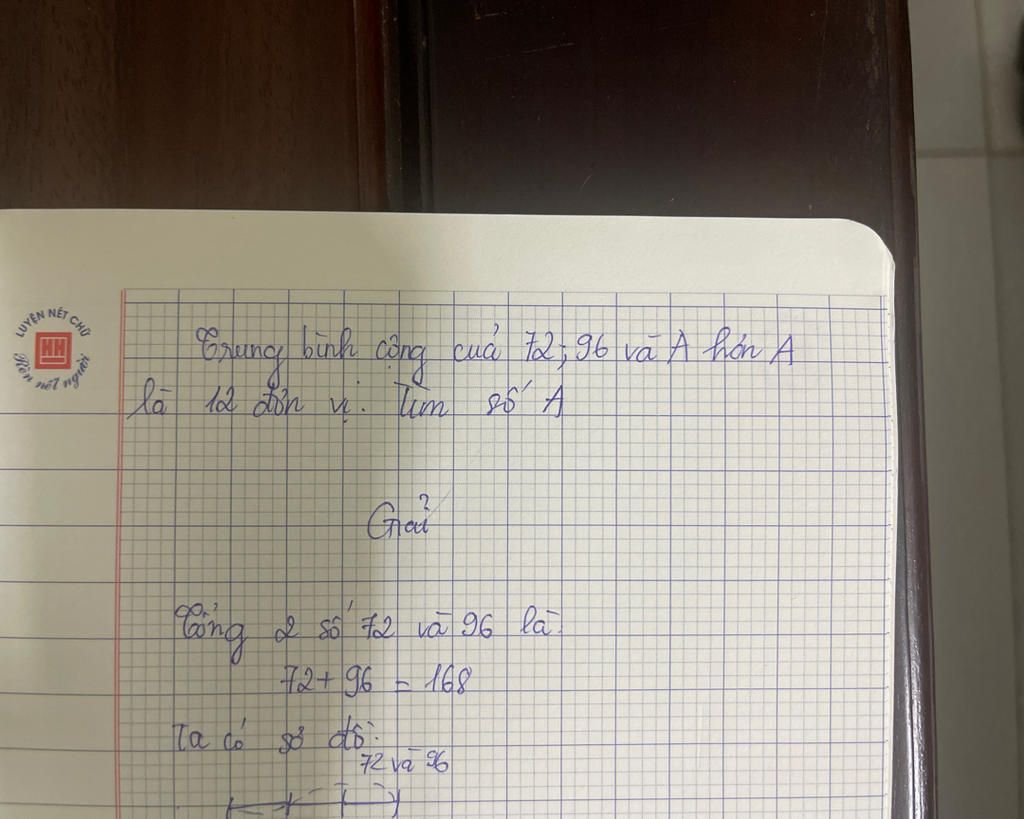 LUYỆN NÉT CHỮ
HH
Rèn nết người
Trung bình cộng của 72; 96 và A hơn A
là 12 đơn vị. Tìm số A
Giải
Tổng 2 số 72 và 96 là:
72 + 96 = 168
Ta có sơ đồ:
72 và 96